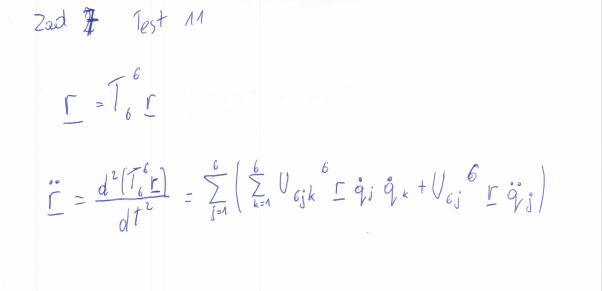 Zad 7 Test 11
r = T₆ ⁶r
r̈ = d²(T₆ ⁶r) / dt² = ∑_{j=1}^{6} ( ∑_{k=1}^{6} U_{6jk} ⁶r q̇_j q̇_k + U_{6j} ⁶r q̈_j )